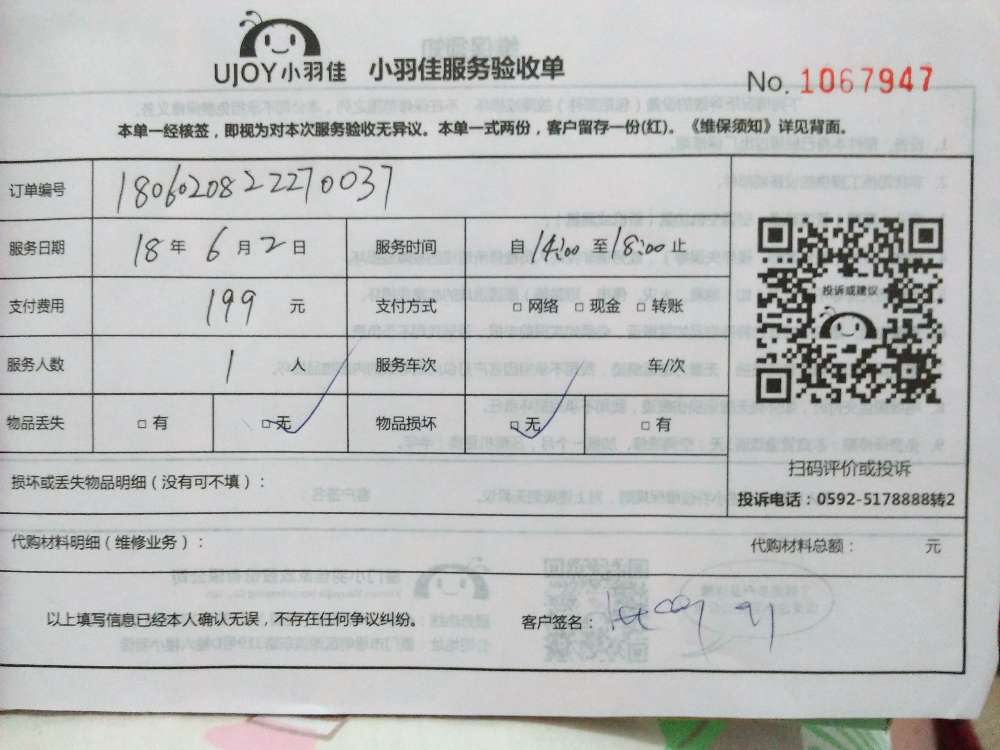 UJOY小羽佳 小羽佳服务验收单
No. 1067947
本单一经核签，即视为对本次服务验收无异议。本单一式两份，客户留存一份(红)。《维保须知》详见背面。
订单编号 1806020822270037
服务日期 18 年 6 月 2 日 服务时间 自 14:00 至 18:00 止
投诉或建议
支付费用 199 元 支付方式 □ 网络 □ 现金 □ 转账
服务人数 1 人 服务车次 车/次
物品丢失 □ 有 □ 无 ✓ 物品损坏 □ 无 ✓ □ 有
扫码评价或投诉
损坏或丢失物品明细（没有可不填）：
投诉电话：0592-5178888转2
代购材料明细（维修业务）： 代购材料总额： 元
以上填写信息已经本人确认无误，不存在任何争议纠纷。 客户签名：